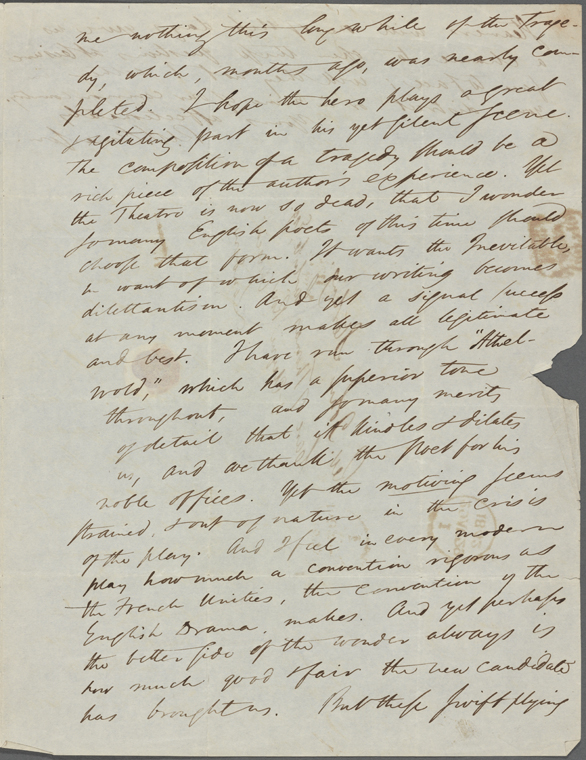 me nothing this long while of the Trage-
dy, which, months ago, was nearly com-
pleted. I hope the hero plays a great
& agitating part in his yet silent Scene.
The composition of a tragedy should be a
rich piece of the author's experience. Yet
the Theatre is now so dead, that I wonder
so many English poets of this time should
choose that form. It wants the Inevitable,
in want of which our writing becomes
dilettantism. And yet a signal success
at any moment makes all legitimate
and best. I have run through "Athel-
wold," which has a superior tone
throughout, and so many merits
of detail that it kindles & dilates
us, and we thank the Poet for his
noble offices. Yet the motiving seems
strained & out of nature in the crisis
of the play. And I feel in every modern
play how much a convention rigorous as
the French Unities, the convention of the
English Drama, makes. And yet perhaps
the better side of the wonder always is
how much good & fair the new candidate
has brought us. But these swift plying